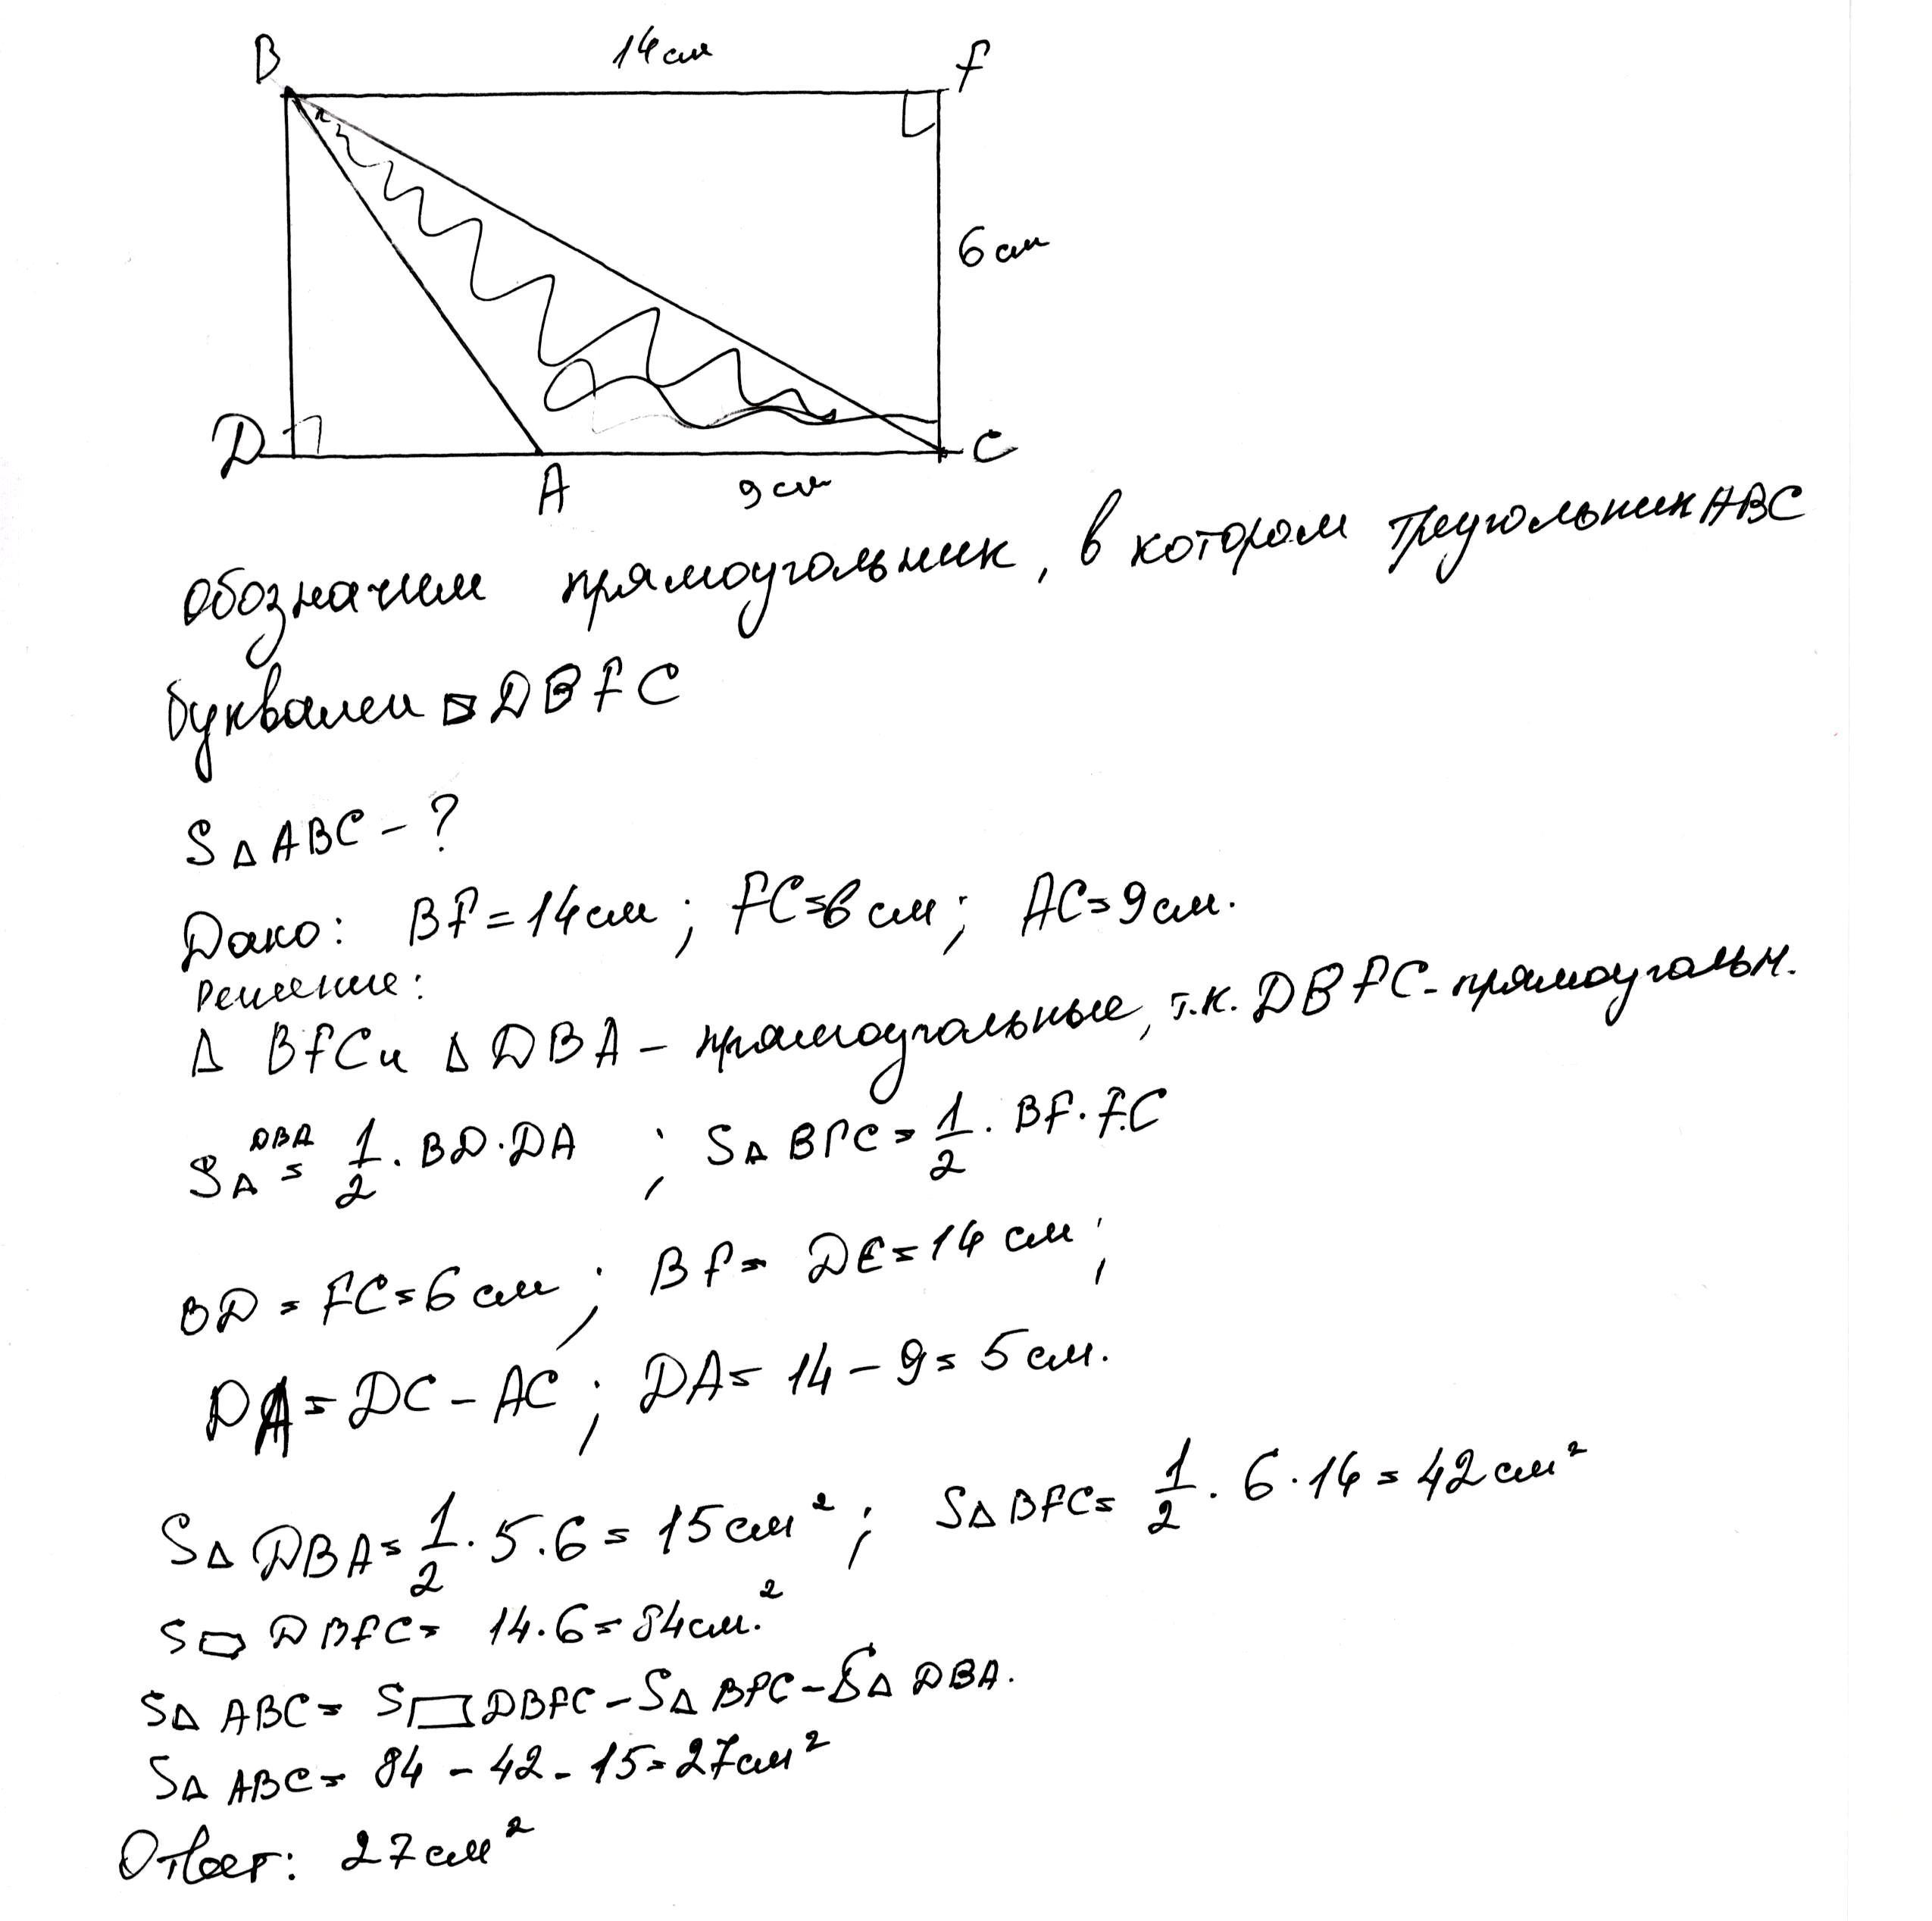 B 14см F
6см
D A 9см C
обозначим прямоугольник, в котором треугольник ABC
буквами ▭ DBFC
S△ABC - ?
Дано: BF = 14см; FC = 6см; AC = 9см.
Решение:
△ BFC и △ DBA - прямоугольные, т.к. DBFC - прямоугольн.
S△DBA = 1/2 · BD · DA ; S△BFC = 1/2 · BF · FC
BD = FC = 6см; BF = DC = 14см;
DA = DC - AC; DA = 14 - 9 = 5см.
S△DBA = 1/2 · 5 · 6 = 15см²; S△BFC = 1/2 · 6 · 14 = 42см²
S▭ DBFC = 14 · 6 = 84см.²
S△ ABC = S▭DBFC - S△BFC - S△ DBA.
S△ ABC = 84 - 42 - 15 = 27см²
Ответ: 27см²